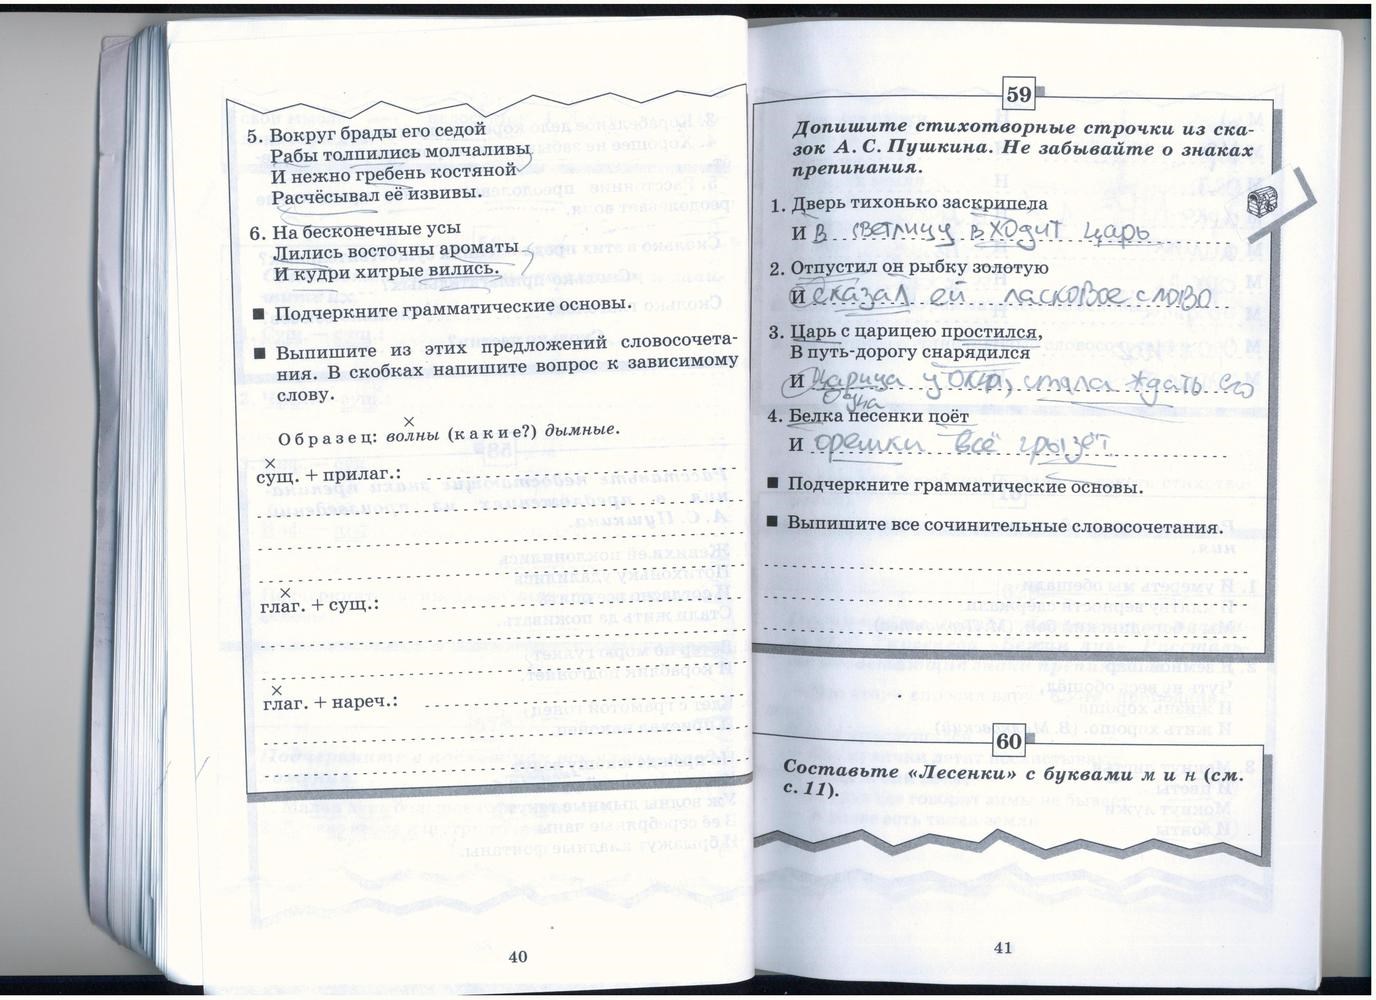 5. Вокруг брады его седой
Рабы толпились молчаливы
И нежно гребень костяной
Расчёсывал её извивы.
6. На бесконечные усы
Лились восточны ароматы
И кудри хитрые вились.
■ Подчеркните грамматические основы.
■ Выпишите из этих предложений словосочета-
ния. В скобках напишите вопрос к зависимому
слову.
×
Образец: волны (какие?) дымные.
×
сущ. + прилаг.:
×
глаг. + сущ.:
×
глаг. + нареч.:
40
59
Допишите стихотворные строчки из ска-
зок А. С. Пушкина. Не забывайте о знаках
препинания.
1. Дверь тихонько заскрипела
И в светлицу входит царь
2. Отпустил он рыбку золотую
И сказал ей ласковое слово
3. Царь с царицею простился,
В путь-дорогу снарядился
И царица у окна, стала ждать его
одна
4. Белка песенки поёт
И орешки всё грызёт
■ Подчеркните грамматические основы.
■ Выпишите все сочинительные словосочетания.
60
Составьте «Лесенки» с буквами м и н (см.
с. 11).
41